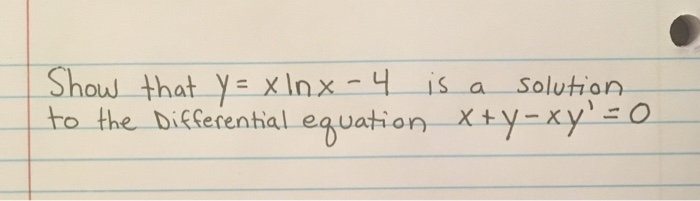 Show that y = x ln x - 4 is a solution
to the Differential equation x + y - xy' = 0